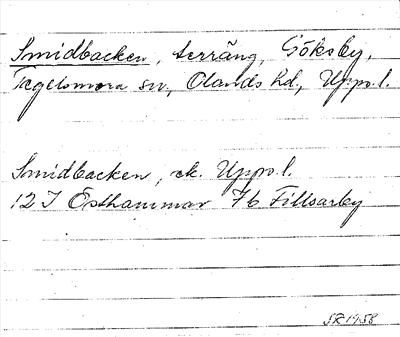 Smidbacken, terräng, Göksby,
Tegelsmora sn, Olands hd., Upps. l.
Smidbacken, ek. Upps. l.
12 I Östhammar 7b Fillsarby
SR 1958